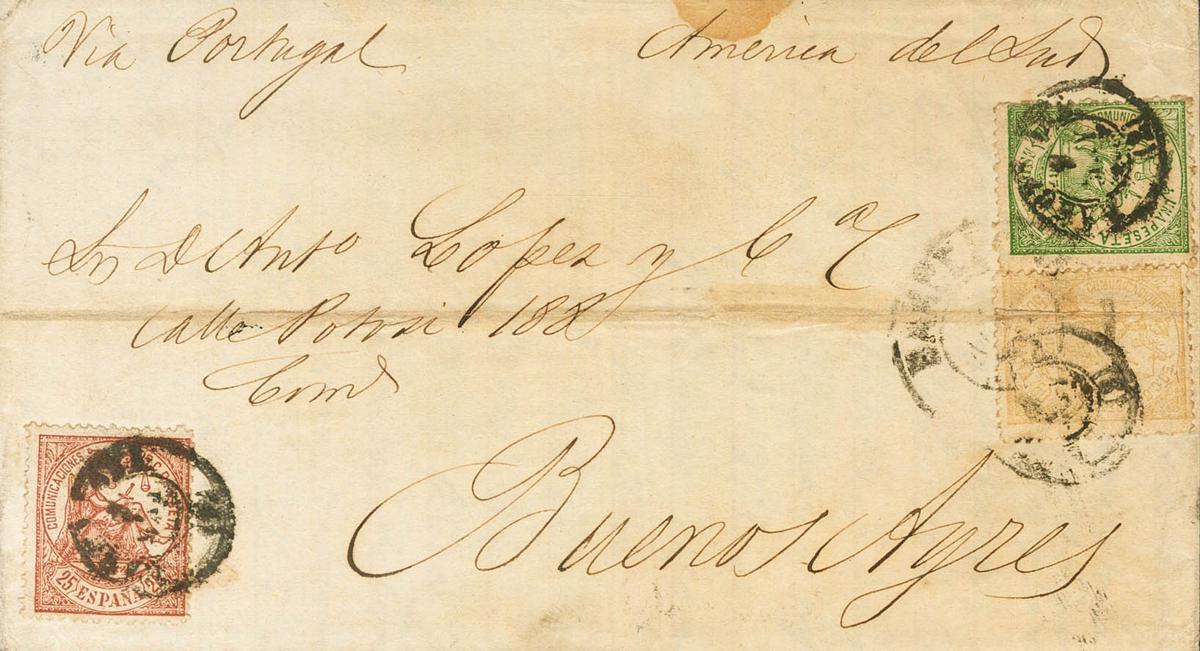 Via Portugal América del Sud
Srs D Anto Lopez y Ca
Calle Potosi 182
Buenos Ayres
COMUNICACIONES
UNA PESETA
COMUNICACIONES
25 C PESETA
25 ESPAÑA 25